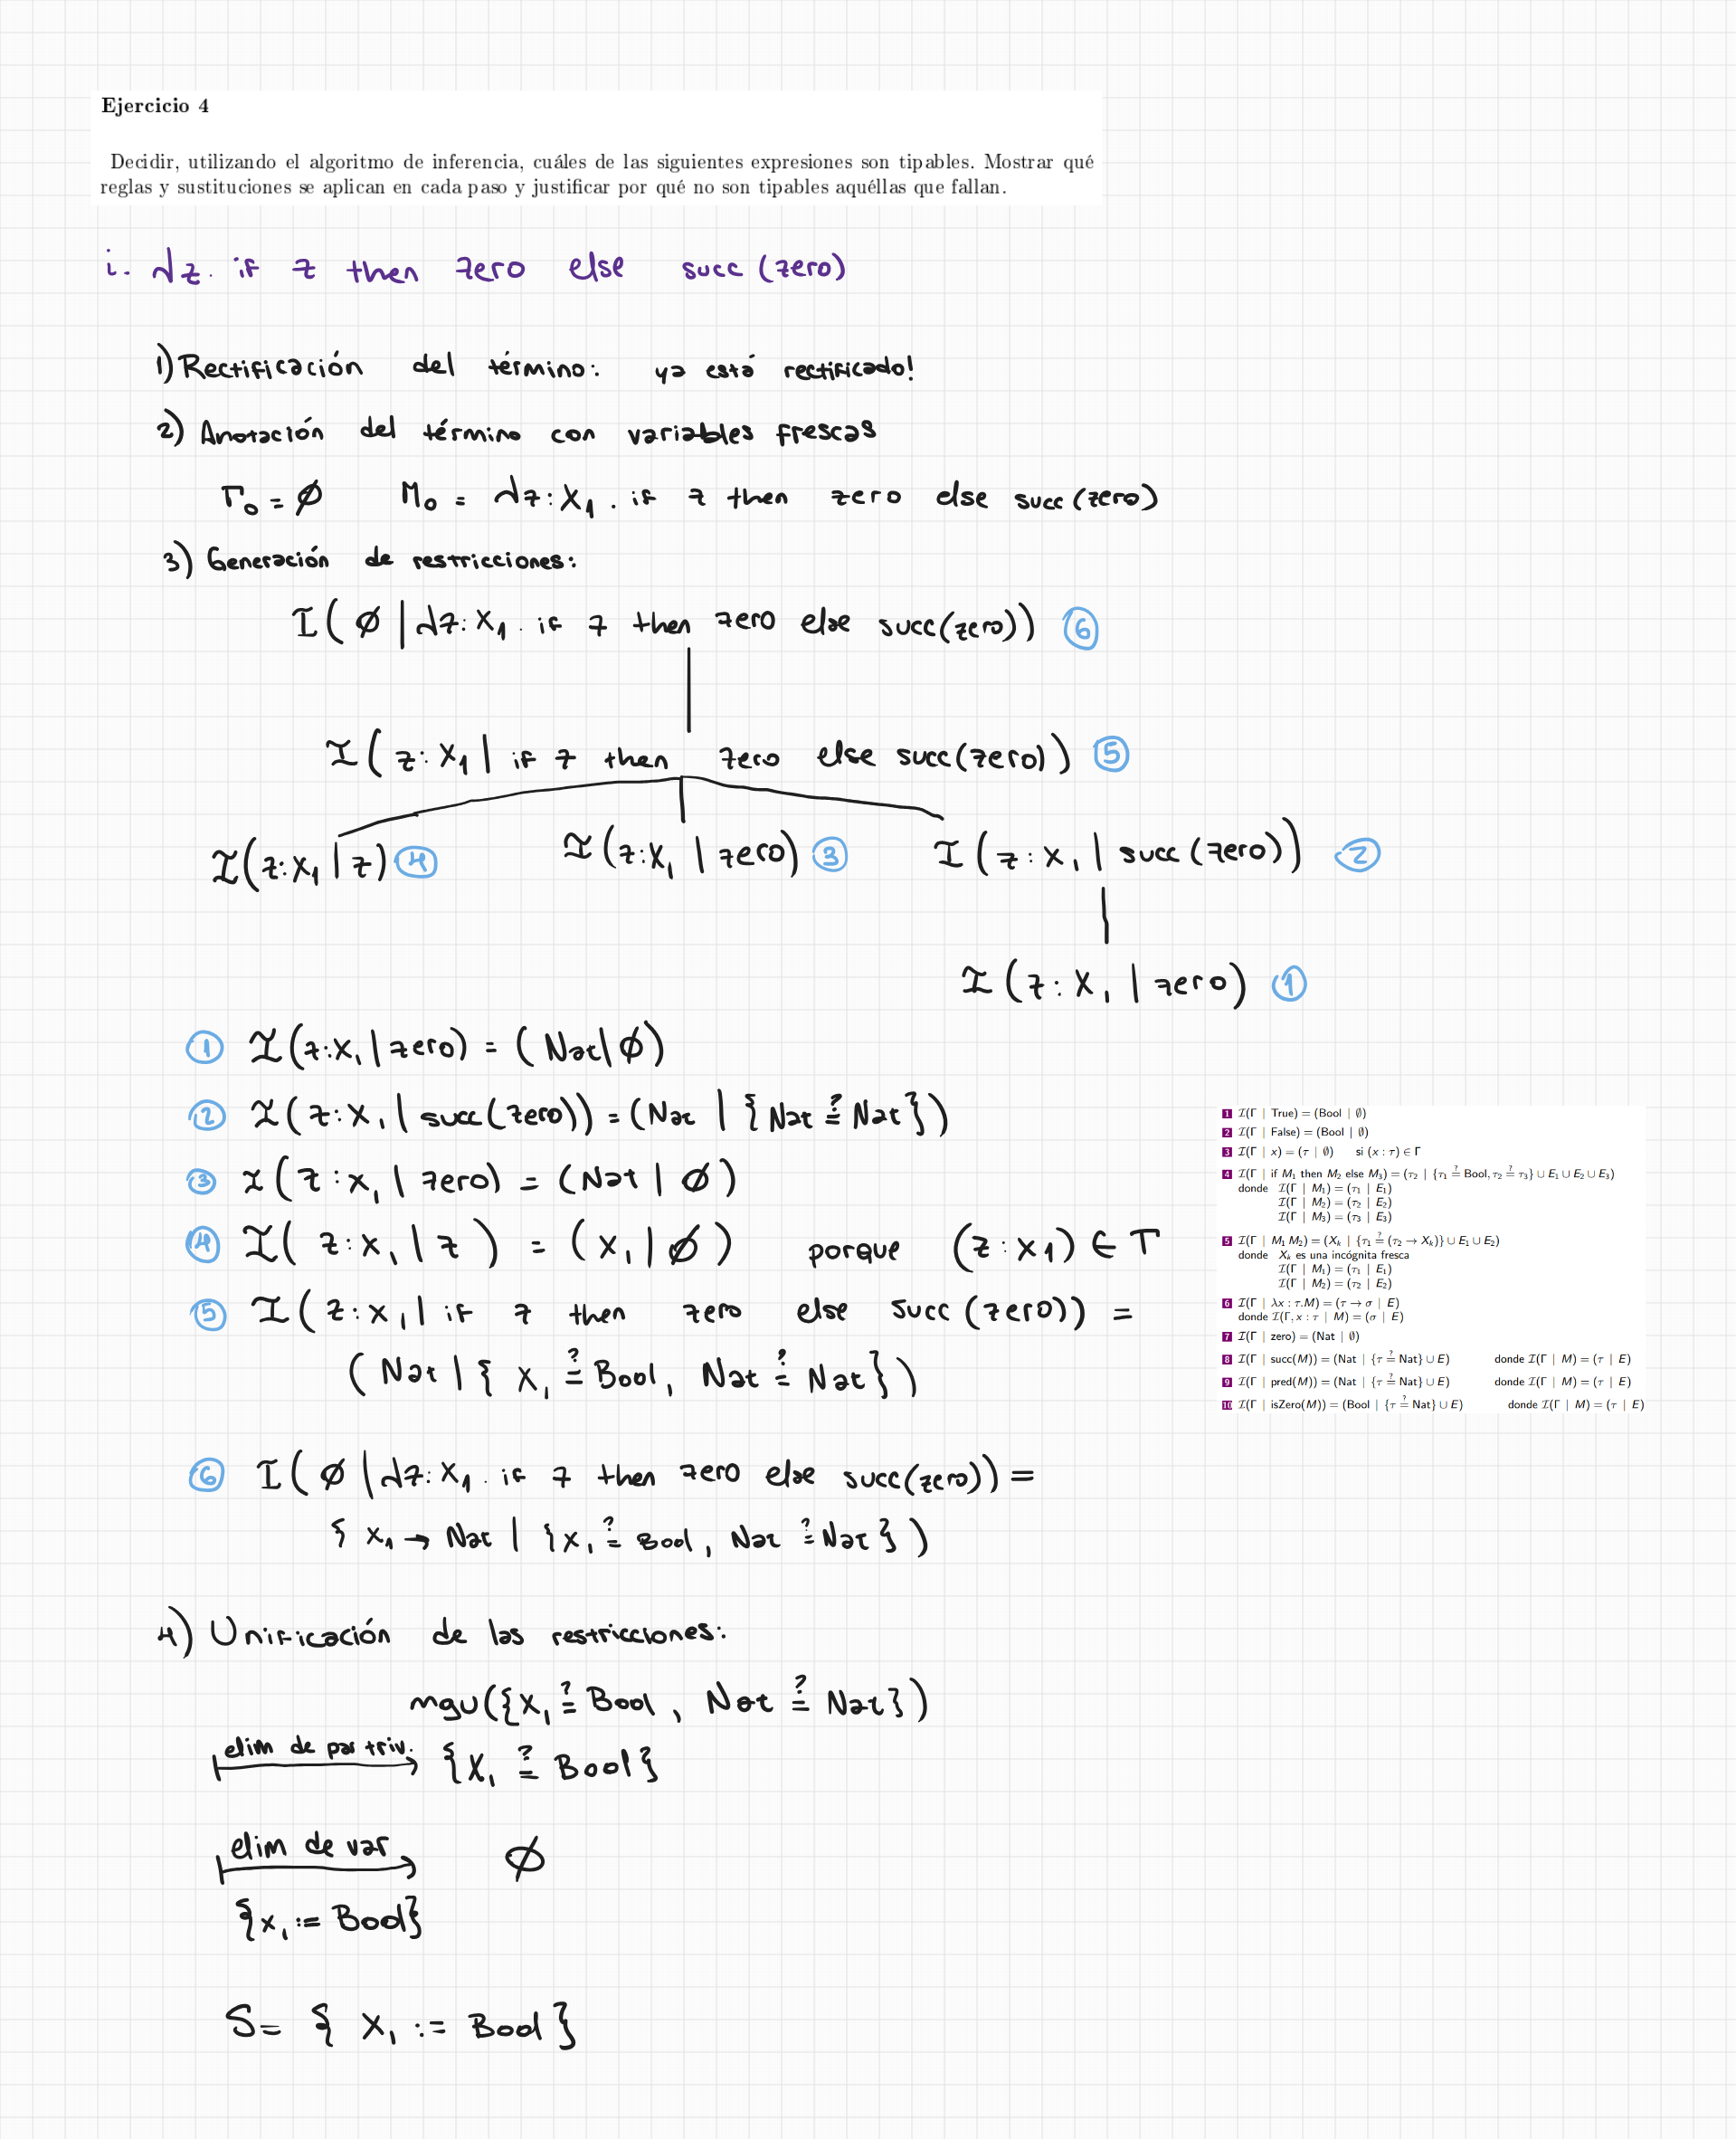 Ejercicio 4
Decidir, utilizando el algoritmo de inferencia, cuáles de las siguientes expresiones son tipables. Mostrar qué
reglas y sustituciones se aplican en cada paso y justificar por qué no son tipables aquéllas que fallan.
i. λz. if z then zero else succ (zero)
1) Rectificación del término: ya está rectificado!
2) Anotación del término con variables frescas
Γ₀ = ∅ M₀ = λz: X₁ . if z then zero else succ (zero)
3) Generación de restricciones:
I( ∅ | λz: X₁ . if z then zero else succ(zero)) ⑥
I( z: X₁ | if z then zero else succ(zero)) ⑤
I(z: X₁ | z) ④ I(z: X₁ | zero) ③ I( z: X₁ | succ (zero)) ②
I(z: X₁ | zero) ①
① I(z: X₁ | zero) = ( Nat | ∅)
② I( z: X₁ | succ(zero)) = (Nat | { Nat ≟ Nat })
③ I( z: X₁ | zero) = (Nat | ∅)
④ I( z: X₁ | z ) = ( X₁ | ∅ ) porque (z: X₁) ∈ Γ
⑤ I( z: X₁ | if z then zero else succ (zero)) =
( Nat | { X₁ ≟ Bool, Nat ≟ Nat })
⑥ I( ∅ | λz: X₁ . if z then zero else succ(zero)) =
{ X₁ → Nat | { X₁ ≟ Bool, Nat ≟ Nat } )
1 I(Γ | True) = (Bool | ∅)
2 I(Γ | False) = (Bool | ∅)
3 I(Γ | x) = (τ | ∅) si (x : τ) ∈ Γ
4 I(Γ | if M₁ then M₂ else M₃) = (τ₂ | {τ₁ ≟ Bool, τ₂ ≟ τ₃} ∪ E₁ ∪ E₂ ∪ E₃)
donde I(Γ | M₁) = (τ₁ | E₁)
I(Γ | M₂) = (τ₂ | E₂)
I(Γ | M₃) = (τ₃ | E₃)
5 I(Γ | M₁ M₂) = (Xₖ | {τ₁ ≟ (τ₂ → Xₖ)} ∪ E₁ ∪ E₂)
donde Xₖ es una incógnita fresca
I(Γ | M₁) = (τ₁ | E₁)
I(Γ | M₂) = (τ₂ | E₂)
6 I(Γ | λx : τ.M) = (τ → σ | E)
donde I(Γ, x : τ | M) = (σ | E)
7 I(Γ | zero) = (Nat | ∅)
8 I(Γ | succ(M)) = (Nat | {τ ≟ Nat} ∪ E) donde I(Γ | M) = (τ | E)
9 I(Γ | pred(M)) = (Nat | {τ ≟ Nat} ∪ E) donde I(Γ | M) = (τ | E)
10 I(Γ | isZero(M)) = (Bool | {τ ≟ Nat} ∪ E) donde I(Γ | M) = (τ | E)
4) Unificación de las restricciones:
mgu({X₁ ≟ Bool , Nat ≟ Nat})
elim de par triv. {X₁ ≟ Bool}
elim de var ∅
{X₁ := Bool}
S= { X₁ := Bool }